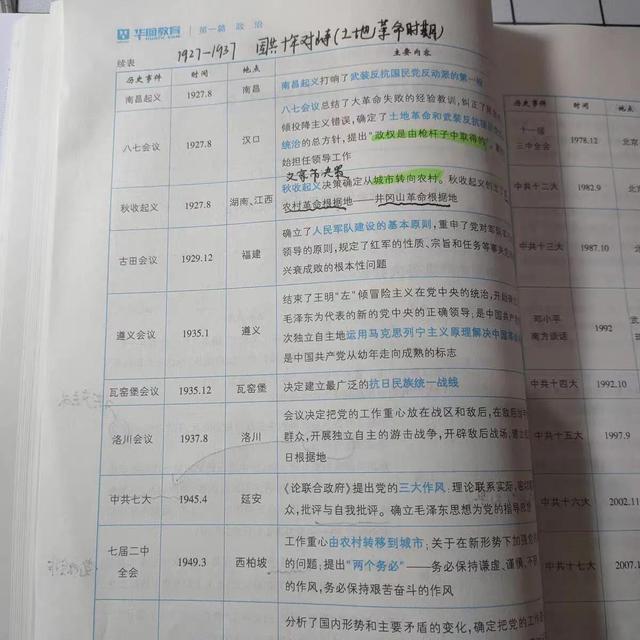 华图教育 第一篇 政治
1927-1937 国共十年对峙(土地革命时期)
续表
历史事件 时间 地点 主要内容
南昌起义 1927.8 南昌 南昌起义打响了武装反抗国民党反动派的第一
八七会议 1927.8 汉口 八七会议总结了大革命失败的经验教训，纠正了
倾投降主义错误，确定了土地革命和武装反抗
统治的总方针，提出"政权是由枪杆子中取得的"
始担任领导工作
文家市决策
秋收起义 1927.8 湖南、江西 秋收起义决策确定从城市转向农村。秋收起义
农村革命根据地——井冈山革命根据地
古田会议 1929.12 福建 确立了人民军队建设的基本原则，重申了党对军队
领导的原则，规定了红军的性质、宗旨和任务等
兴衰成败的根本性问题
遵义会议 1935.1 遵义 结束了王明"左"倾冒险主义在党中央的统治，
毛泽东为代表的新的党中央的正确领导；是中国共产
次独立自主地运用马克思列宁主义原理解决中国
是中国共产党从幼年走向成熟的标志
瓦窑堡会议 1935.12 瓦窑堡 决定建立最广泛的抗日民族统一战线
洛川会议 1937.8 洛川 会议决定把党的工作重心放在战区和敌后，在敌后
群众，开展独立自主的游击战争，开辟敌后战场，
日根据地
中共七大 1945.4 延安 《论联合政府》提出党的三大作风：理论联系实际，
众，批评与自我批评。确立毛泽东思想为党的指导
七届二中全会 1949.3 西柏坡 工作重心由农村转移到城市；关于在新形势下加强
的问题；提出"两个务必"——务必保持谦虚、谨慎、
的作风，务必保持艰苦奋斗的作风
分析了国内形势和主要矛盾的变化，确定把党的工作
历史事件 时间 地点
十一届三中全会 1978.12 北京
中共十二大 1982.9 北京
中共十三大 1987.10
邓小平南方谈话 1992
中共十四大 1992.10
中共十五大 1997.9
中共十六大 2002.11
中共十七大 2007.1